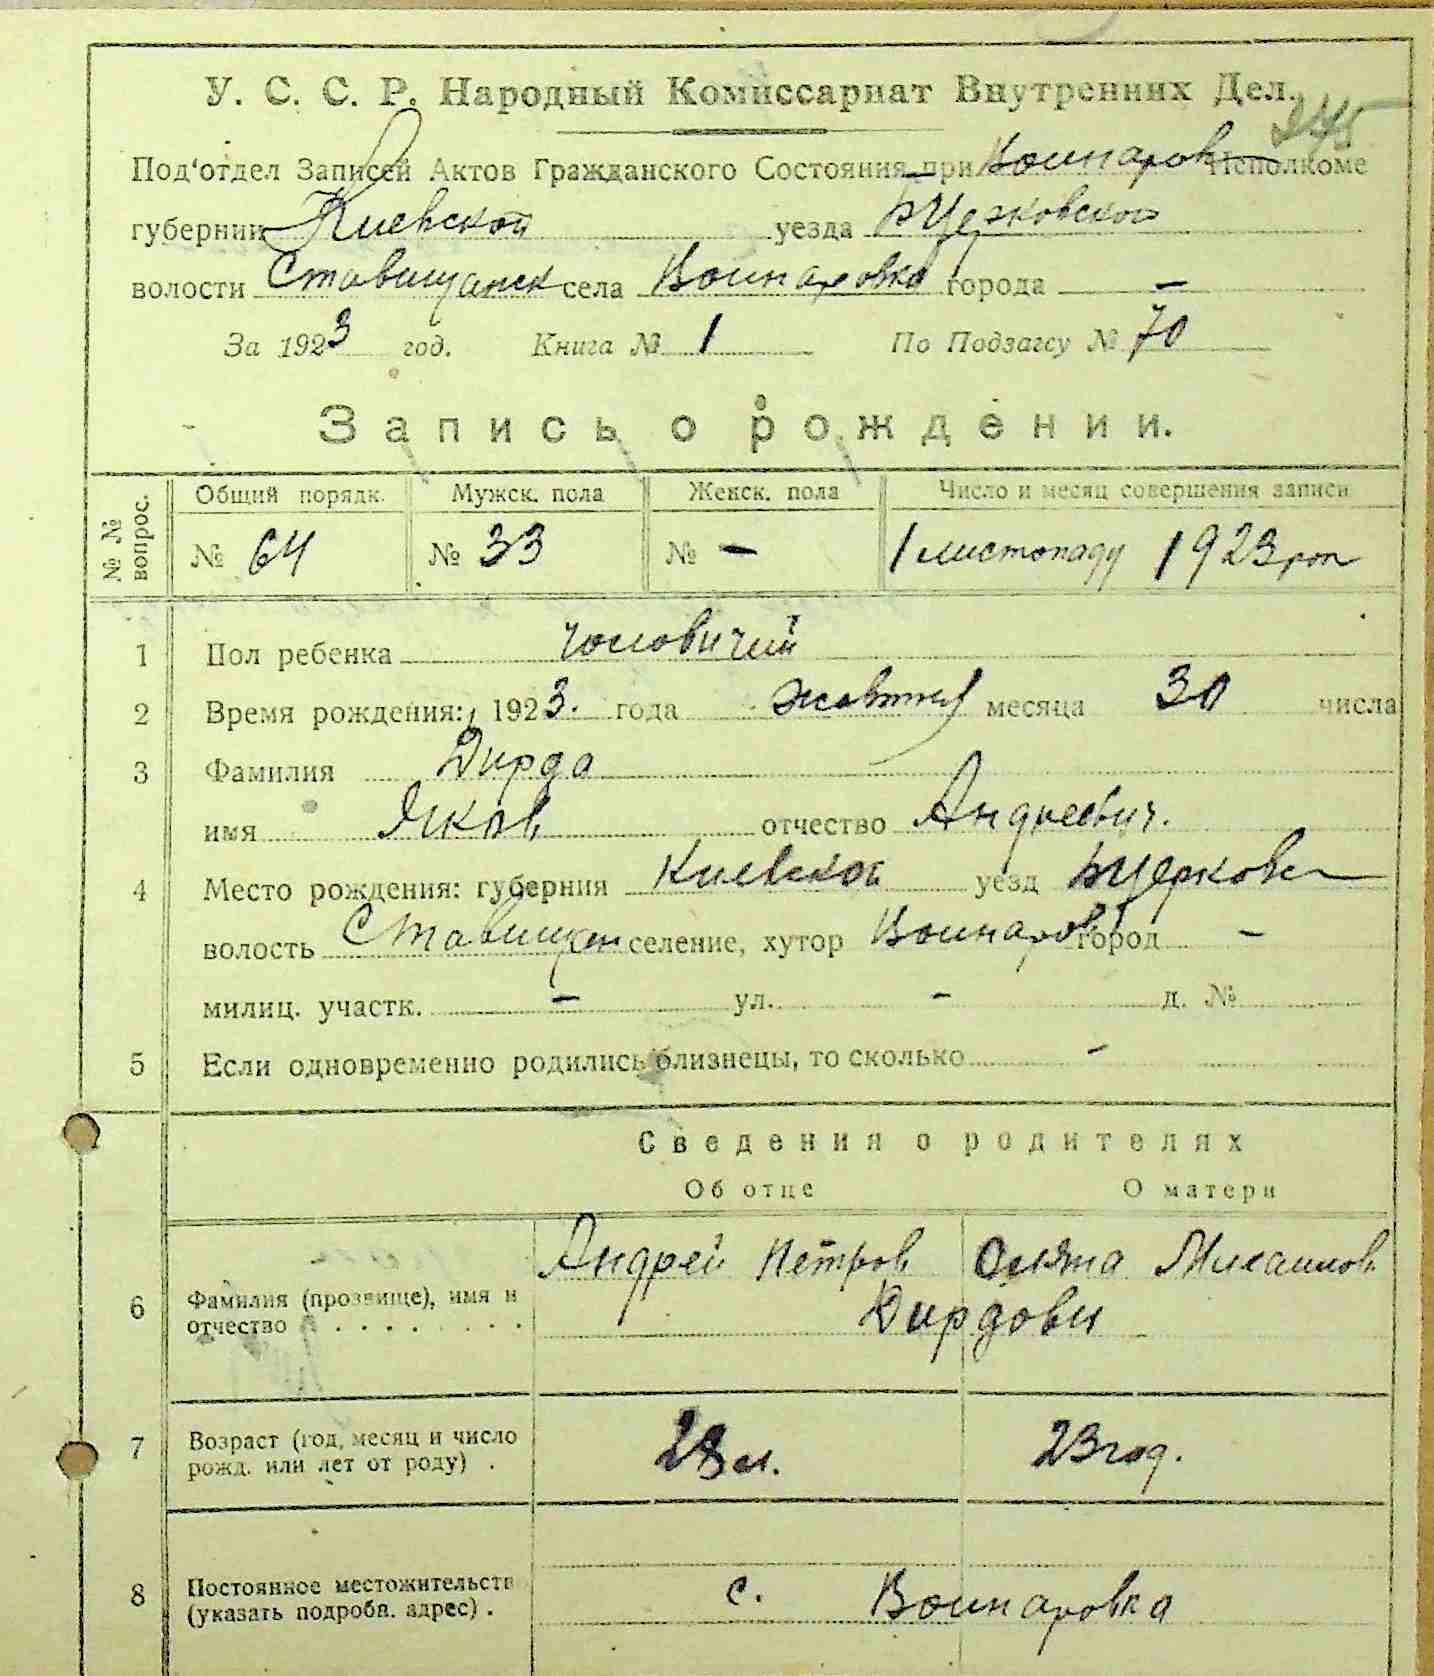 245
У. С. С. Р. Народный Комиссариат Внутренних Дел.
Под'отдел Записей Актов Гражданского Состояния при Воинаров Исполкоме
губернии Киевской уезда БЦерковского
волости Ставищанск села Воинаровка города –
За 1923 год. Книга № 1 По Подзагсу № 70
Запись о рождении.
№ № вопрос. Общий порядк. Мужск. пола Женск. пола Число и месяц совершения записи
№ 64 № 33 № – 1 листопаду 1923 рок
1 Пол ребенка чоловичий
2 Время рождения: 1923. года жовтня месяца 30 числа
3 Фамилия Дирда
имя Яков отчество Андреевич.
4 Место рождения: губерния Киевской уезд БЦерковс
волость Ставищан селение, хутор Воинаров город –
милиц. участк. – ул. – д. №
5 Если одновременно родились близнецы, то сколько –
Сведения о родителях
Об отце О матери
Андрей Петров Оляна Михаилов
6 Фамилия (прозвище), имя и
отчество . . . . . . . . Дирдови
7 Возраст (год, месяц и число
рожд. или лет от роду) . 28 л. 23 год.
8 Постоянное местожительств
(указать подробн. адрес) . с. Воинаровка